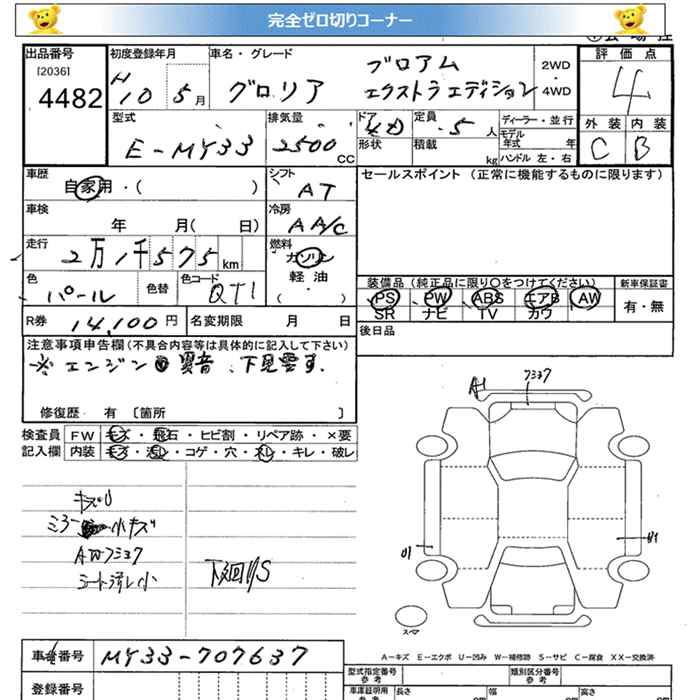 完全ゼロ切りコーナー
出品番号
[2036]
4482
初度登録年月
H 10 5月
車名・グレード
グロリア
ブロアム
エクストラエディション
2WD
・
4WD
評価点
4
外装 内装
C B
型式
E-MY33
排気量
2500 CC
ドア
形状
定員
5人
積載
kg
ディーラー・並行
モデル
年式 年
ハンドル 左・右
車歴
自家用・( )
シフト
AT
セールスポイント (正常に機能するものに限ります)
車検
年 月( 日)
冷房
AA/C
走行
2万1千575 km
燃料
ガソリン
軽油
( )
色
パール
色替
色コード
QT1
装備品 (純正品に限り○をつけてください)
新車保証書
PS PW ABS エアB AW
SR ナビ TV カワ
有・無
R券 14,100円
名変期限 月 日
後日品
注意事項申告欄(不具合内容等は具体的に記入して下さい)
※エンジン異音、下見要す.
修復歴 有 [箇所 ]
検査員
記入欄
FW キズ・飛石・ヒビ割・リペア跡・×要
内装 キズ・汚レ・コゲ・穴・スレ・キレ・破レ
キズU
ミラー 小キズ
AWフミヨワ
下廻りS
A1
U1
スペア
A－キズ E－エクボ U－凹み W－補修跡 S－サビ C－腐食 XX－交換済
車番番号
MY33-707637
登録番号
型式指定番号
参考
類別区分番号
参考
車庫証明用
参考
長さ
幅
高さ